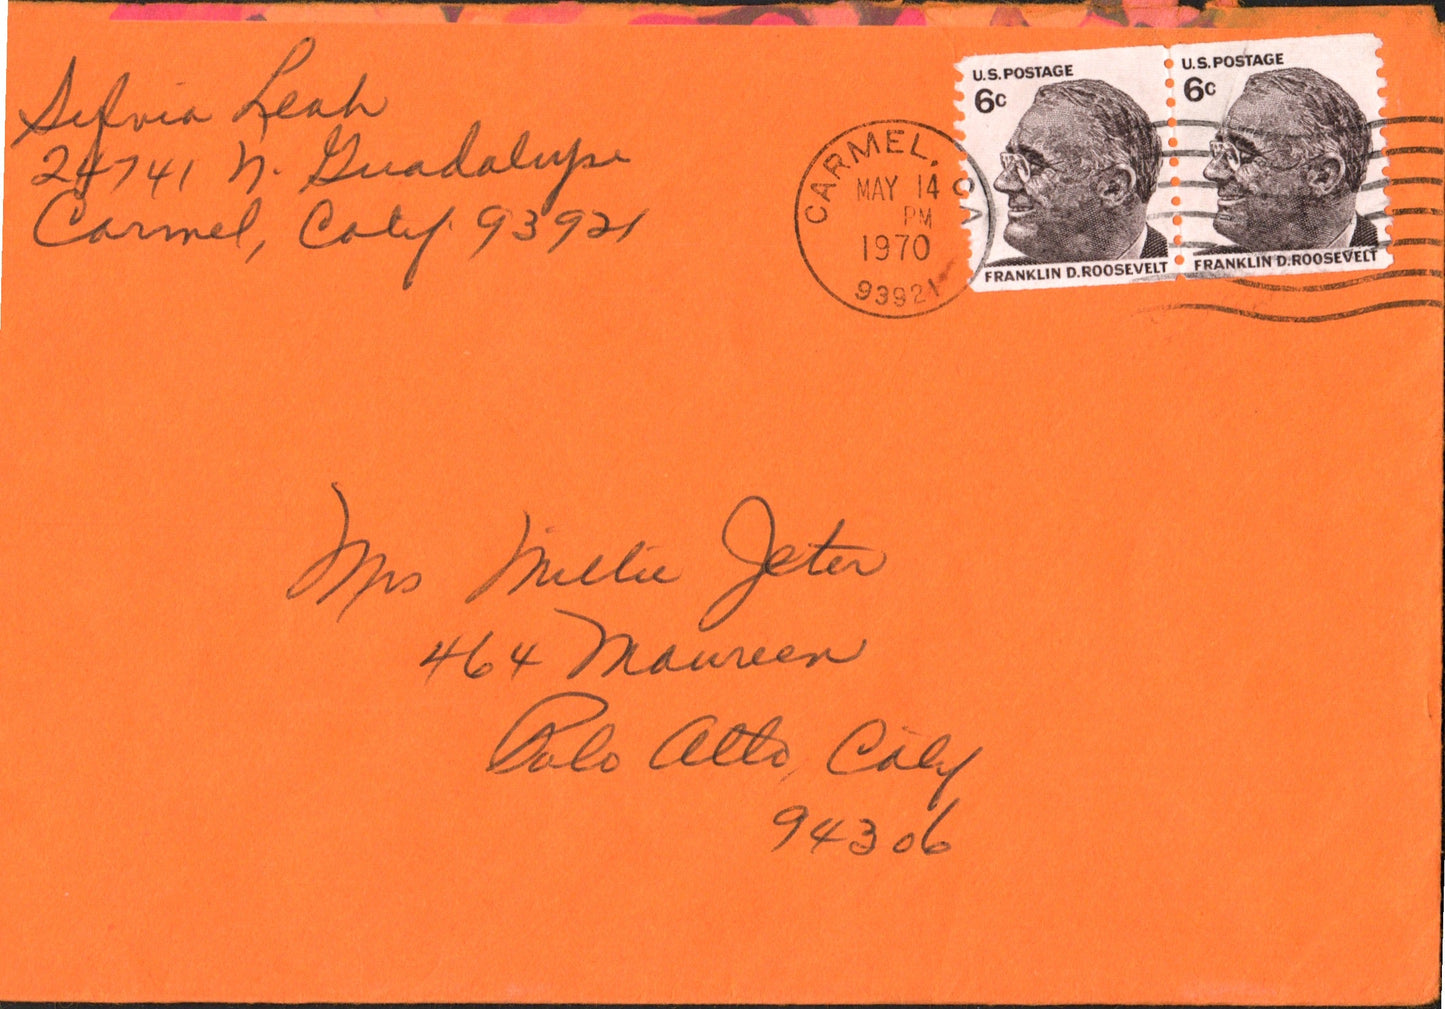 Sylvia Leah
24741 N. Guadalupe
Carmel, Calif. 93921
CARMEL, CA
MAY 14
PM
1970
93921
U.S. POSTAGE
6c
FRANKLIN D. ROOSEVELT
U.S. POSTAGE
6c
FRANKLIN D. ROOSEVELT
Mrs Millie Jeter
464 Maureen
Palo Alto, Calif
94306